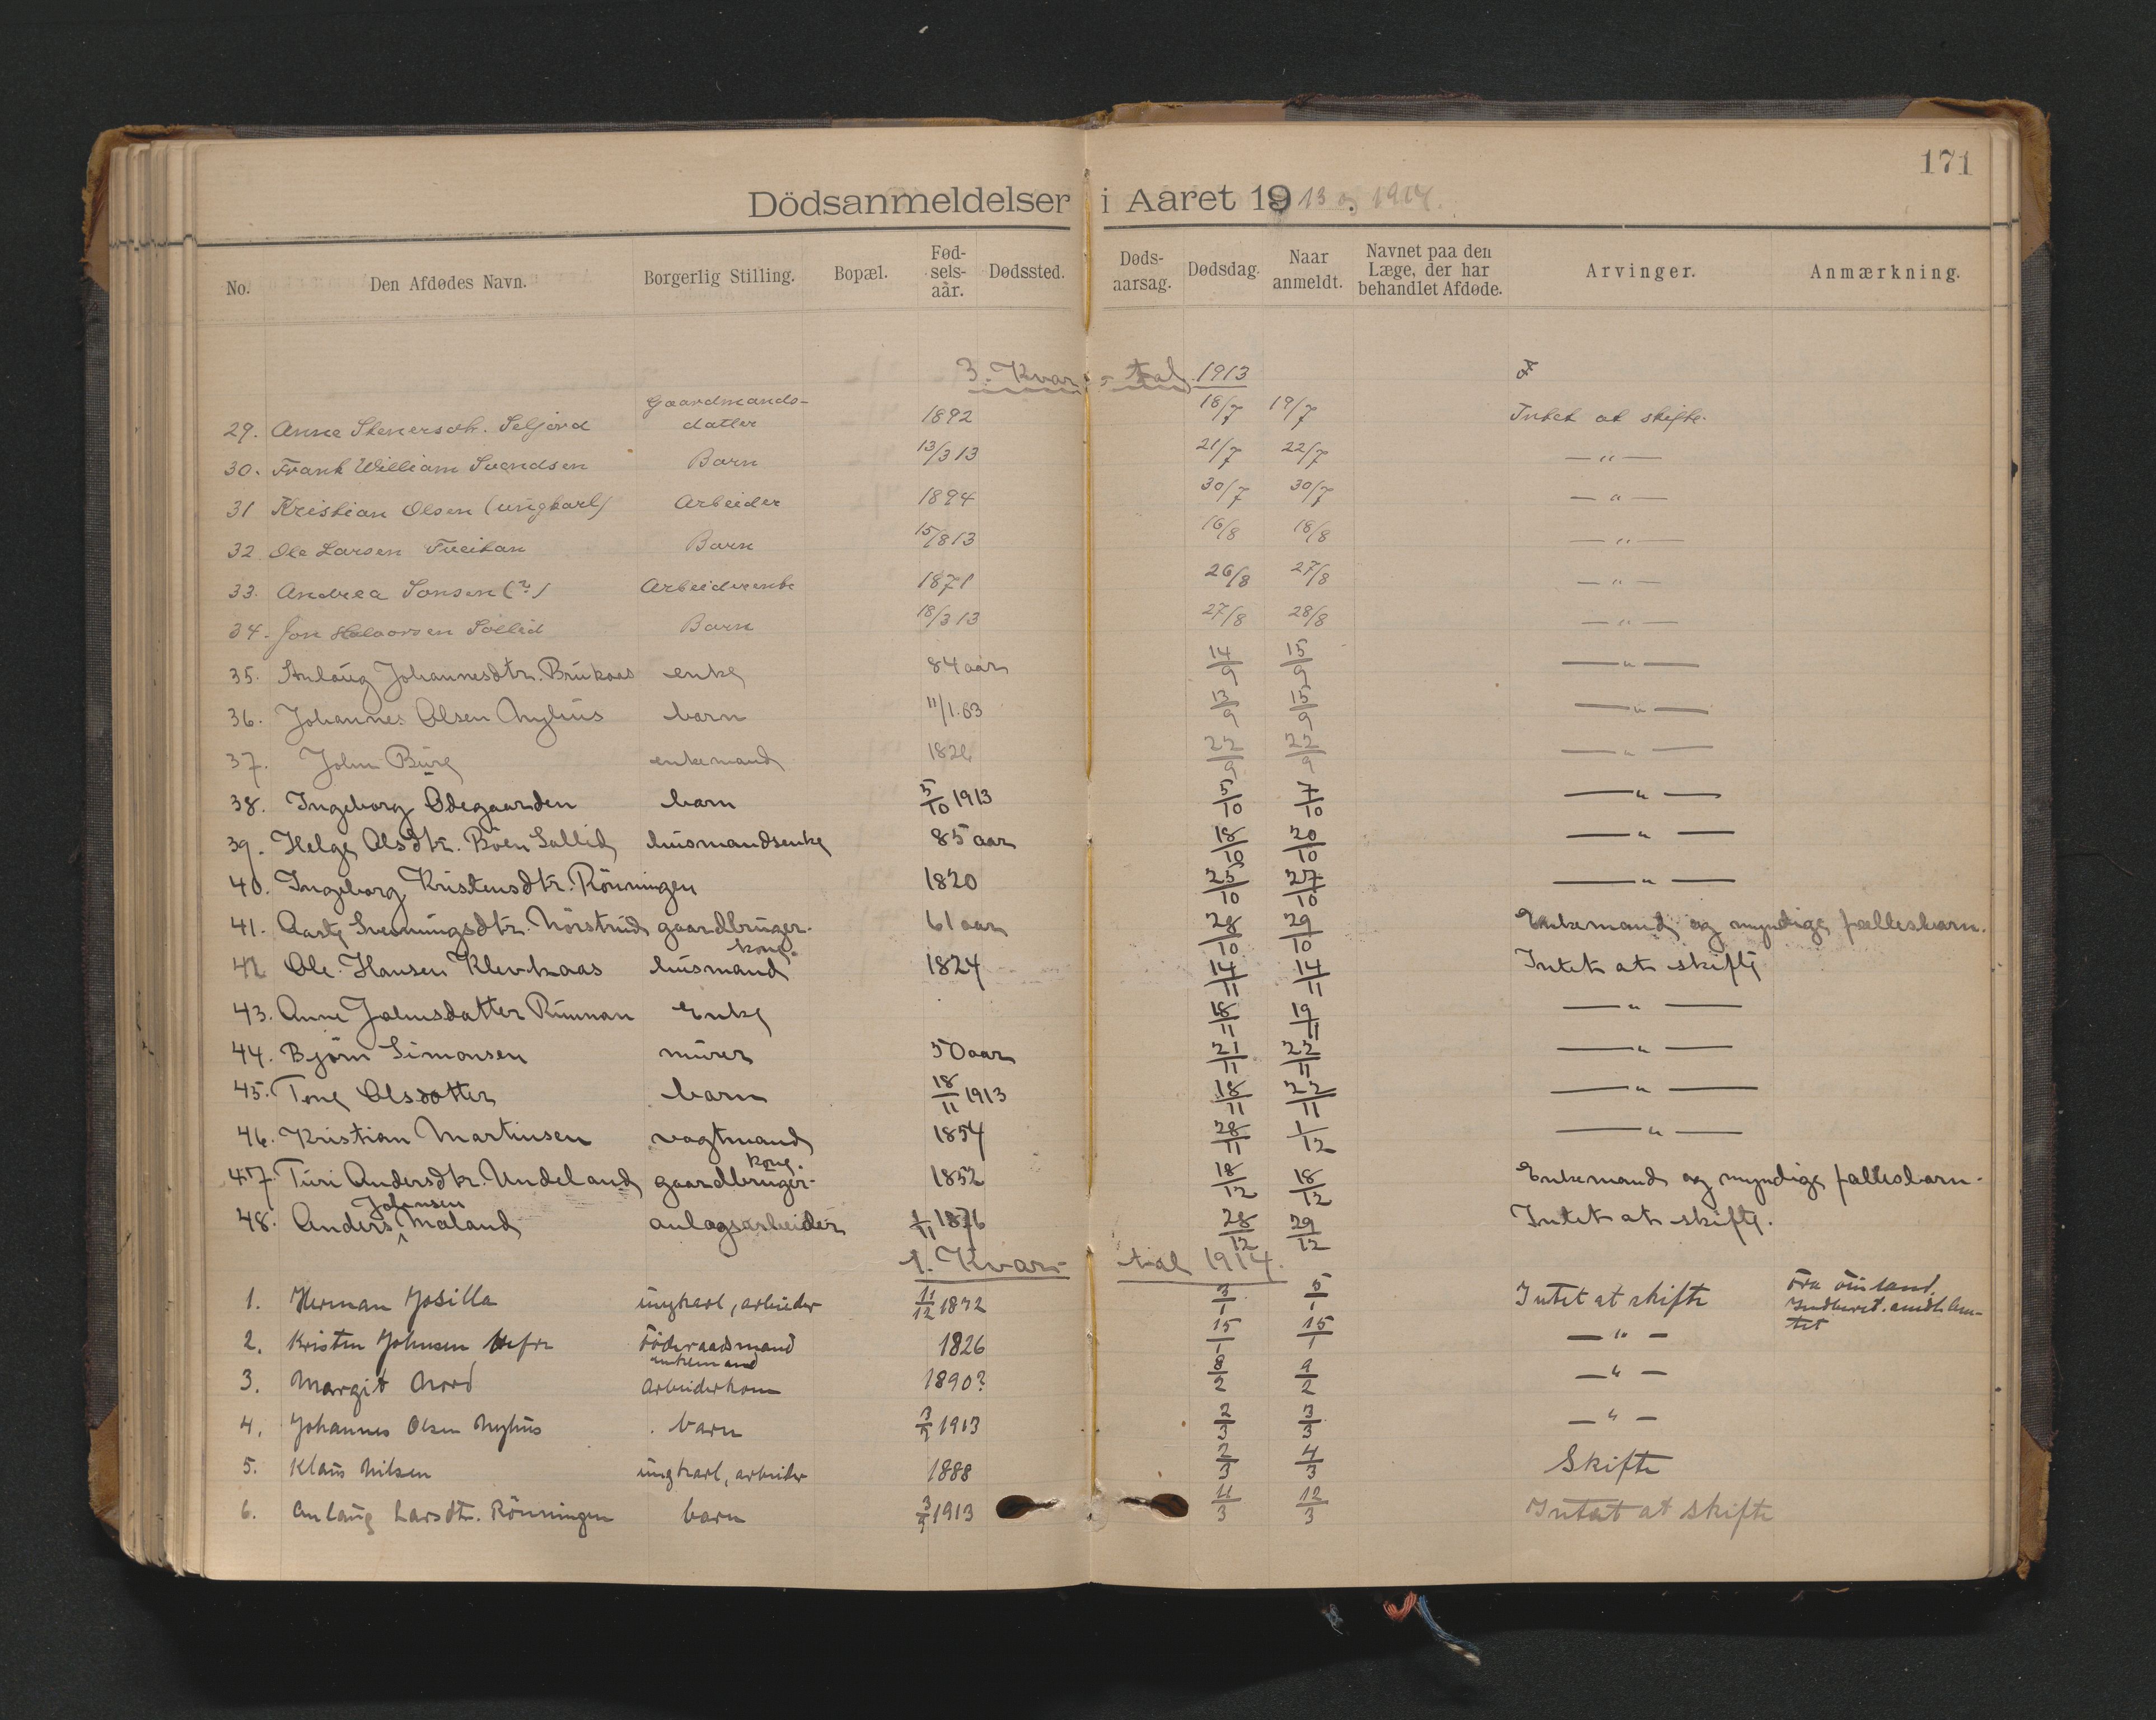 171
Dödsanmeldelser i Aaret 1913 og 1914.
No. Den Afdødes Navn. Borgerlig Stilling. Bopæl. Fød-sels-aar. Dødssted. Døds-aarsag. Dødsdag. Naar anmeldt. Navnet paa den Læge, der har behandlet Afdøde. Arvinger. Anmærkning.
3. Kvar-tal 1913
29. Anne Stenersdtr. Seljord Gaardmands-datter 1892 18/7 19/7 Intet at skifte.
30. Frank William Svendsen Barn 13/3 13 21/7 22/7 — " —
31 Kristian Olsen (ungkarl) Arbeider 1894 30/7 30/7 — " —
32 Ole Larsen Tveitan Barn 15/8 13 16/8 18/8 — " —
33. Andrea Jonsen (?) Arbeiderenke 1871 26/8 27/8 — " —
34. Jon Halvorsen Sollid Barn 18/3 13 27/8 28/8 — " —
35. Anlaug Johannesdtr. Brukaas enke 84 aar 14/9 15/9 — " —
36. Johannes Olsen Nyhus barn 11/1.63 13/9 15/9 — " —
37. John Burg enkemand 1826 22/9 22/9 — " —
38. Ingeborg Ødegaarden barn 5/10 1913 5/10 7/10 — " —
39. Helge Olsdtr. Böen Sollid husmandsenke 85 aar 18/10 20/10 — " —
40. Ingeborg Kristensdtr. Rönningen 1820 25/10 27/10 — " —
41. Aaste Svenningsdtr. Nörstrud gaardbruger-kone. 61 aar 28/10 29/10 Enkemand og myndige fællesbarn.
42 Ole Hansen Klevkaas husmand 1824 14/11 14/11 Intet at skifte
43. Anne Johnsdatter Rünnan Enke 18/11 19/11 — " —
44. Björn Simonsen murer 50 aar 21/11 22/11 — " —
45. Tone Olsdatter barn 18/11 1913 18/11 22/11 — " —
46. Kristian Martinsen vagtmand 1854 28/11 1/12 — " —
47. Turi Andersdtr. Undeland gaardbruger-kone. 1852 18/12 18/12 Enkemand og myndige fællesbarn.
48. Anders Johnsen Maland anlagsarbeider 1/11 1876 28/12 29/12 Intet at skifte.
1. Kvar-tal 1914.
1. Herman Josilla ungkarl, arbeider 11/12 1872 3/1 5/1 Intet at skifte fra
2. Kristen Johnsen föderaadsmand enkemand 1826 15/1 15/1 — " —
3. Margit Nord arbeiderkone 1890? 8/2 9/2 — " —
4. Johannes Olsen Nyhus barn 1913 2/3 3/3 — " —
5. Klaus Nilsen ungkarl, arbeider 1888 2/3 4/3 Skifte
6. Anlaug Larsdtr. Rönningen barn 1913 11/3 12/3 Intet at skifte